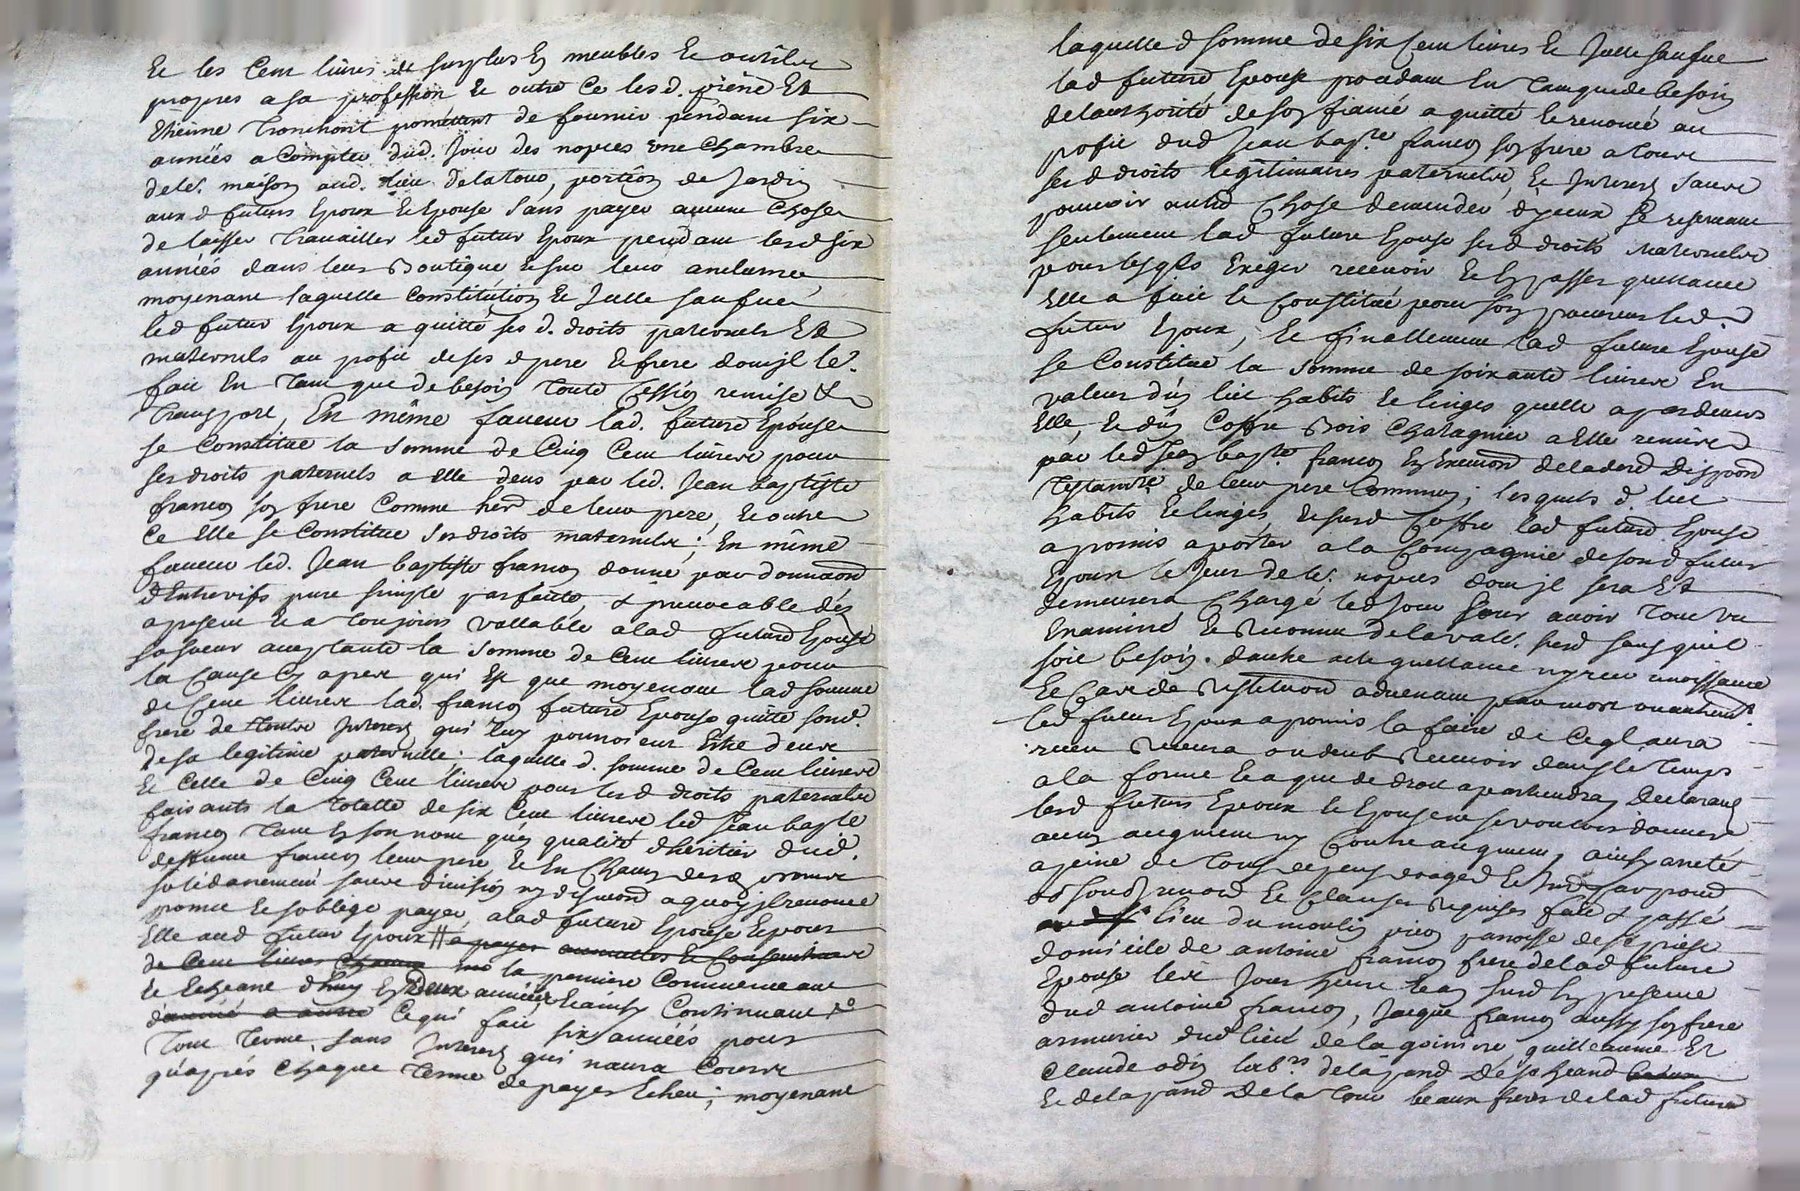 Et les Cent livres de surplus En meubles Et outils
propres a sa profession Et outre Ce lesd. pierre Et
Etienne Tronchont promettent de fournir pendant six
années a Compter dud. Jour des nopces une Chambre
de le. maison aud. lieu delatour, portion de Jardin
aux d futurs Epoux Et Epouse sans payer aucune Chose
de laisser Travailler led futur Epoux pendant lesd six
années dans leur Boutique Et sur leur anclume,
moyenant laquelle Constitution Et Icelle sauf
led futur Epoux a quitté ses d. droits paternels Et
maternels au profit de ses d pere Et frere dont Il le.
fait En Tant que de besoin Toute Cession remise &
Transport, En même faveur lad. future Epouse
se Constitue la somme de Cinq Cent livres pour
ses droits paternels a Elle deus par led. Jean baptiste
francon son frere Comme her. de leur pere, Et outre
Ce Elle se Constitue ses droits maternels; En même
faveur led. Jean baptiste francon donne par donnaon
d'Entrevifs pure simple parfaite, &
a present Et a Toujours vallable a lad future Epouse
sa sœur acceptante la somme de Cent livres pour
la Cause Cy apres qui Est que moyenant lad somme
de Cent livres lad. francon future Epouse quitte sond.
frere de Toutes Interets qui luy pourroient Etre deus
de sa legitime paternelle; laquelle d. somme de Cent livres
Et Celle de Cinq Cent livres pour lesd droits paternels
faisants la Totalle de six Cent livres led Jean bapte
francon Tant En son nom qu'en qualité d'héritier dud.
deffunt francon leur pere Et En Chacun desd noms
solidairement sans division ny discuon a quoy Il renonce
promet Et soblege payer a lad future Epouse Et pour
Elle aud futur Epoux # a payer annuelles Et Consecutives
de Cent livres Chacune la premiere Commencant
Et Echeant d'huy En Deux années Et ainsy Continuant
d'année a autre Ce qui fait six années pour
Tout Terme, sans Interets qui naura Cours
qu'aprés Chaque Terme de payer Echeu; moyenant
laquelle d somme de six Cent livres Et Icelle sauf
lad future Epouse procedant En Tant que de besoin
de lauthorité de son fiancé a quitté Et renoncé au
profit dud Jean bapte francon son frere a Tous
ses d droits legitimaires paternels, Et Interets sans
pouvoir autre Chose demander d'yceux se reservant
seulement lad future Epouse ses d droits Maternels
pour lesqls Exeger recevoir Et En passer quittance
Elle a fait Et Constitué pour son procureur led.
futur Epoux, Et finallement lad future Epouse
se Constitue la somme de soixante livres En
valeur d'un lict habits Et linges quelle a pardevers
Elle, Et d'un Coffre Bois Chatagnier a Elle remis
par led Jean bapte francon En Execuon de la derd Dispoon
Testamre de leur pere Commun; lesquels d lict
habits Et linges Et surd Coffre lad future Epouse
a promis aporter a la Compagnie de sond futur
Epoux le Jour de le. nopces dont Il sera Et
demeurera Chargé led Jour pour avoir Tout vu
Examiné Et Reconnu de la vale. sans quil
soit besoin. dautre acte quittance ny reconnoissance
Et Cas de restituon advenant par mort ou autremt.
led futur Epoux a promis la faire de Ce ql aura
receu Recevra ou deub Recevoir dans le Temps
a la forme Et a que de droit apartiendra, Declarant
lesd futurs Epoux Et Epouse ne se vouloir donner
aucun augment ny Contre augment, ainsy areté
a peine de Tous depens domages
Et Clauses requises fait & passé
au lieu du moulin parroisse de st priest
domicile de antoine francon frere de lad future
Epouse les Jour heure Et an surd En presence
dud antoine francon, Jacque francon aussy son frere
armurier dud lieu de la quittaume Et
Claude odin labrs dela pand
Et dela pand De la Tour beaux freres de lad future